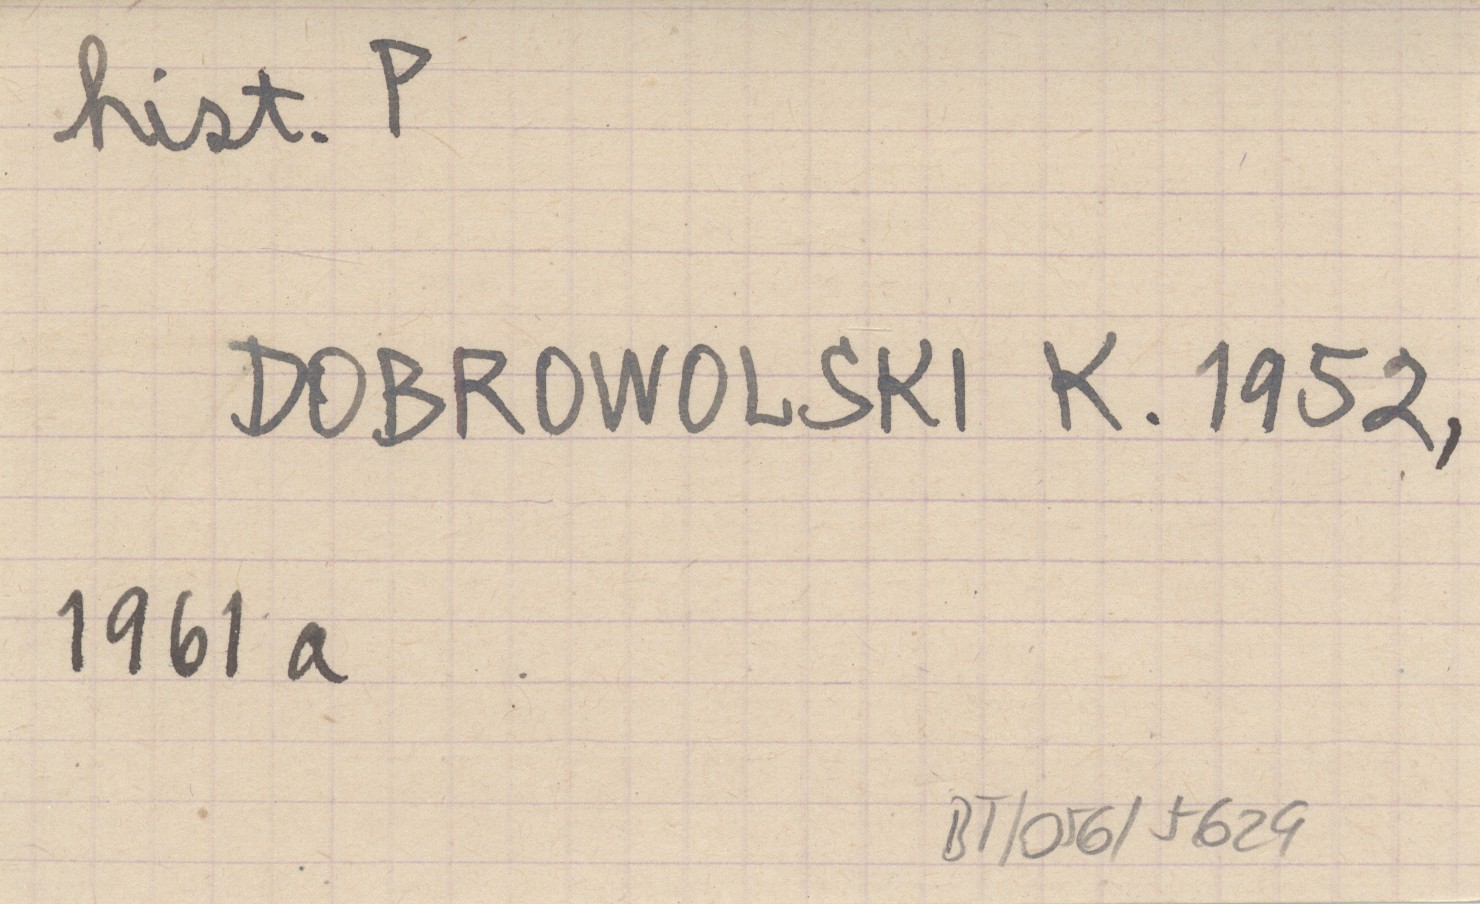 hist. P
DOBROWOLSKI K. 1952,
1961 a
BT/056/5629